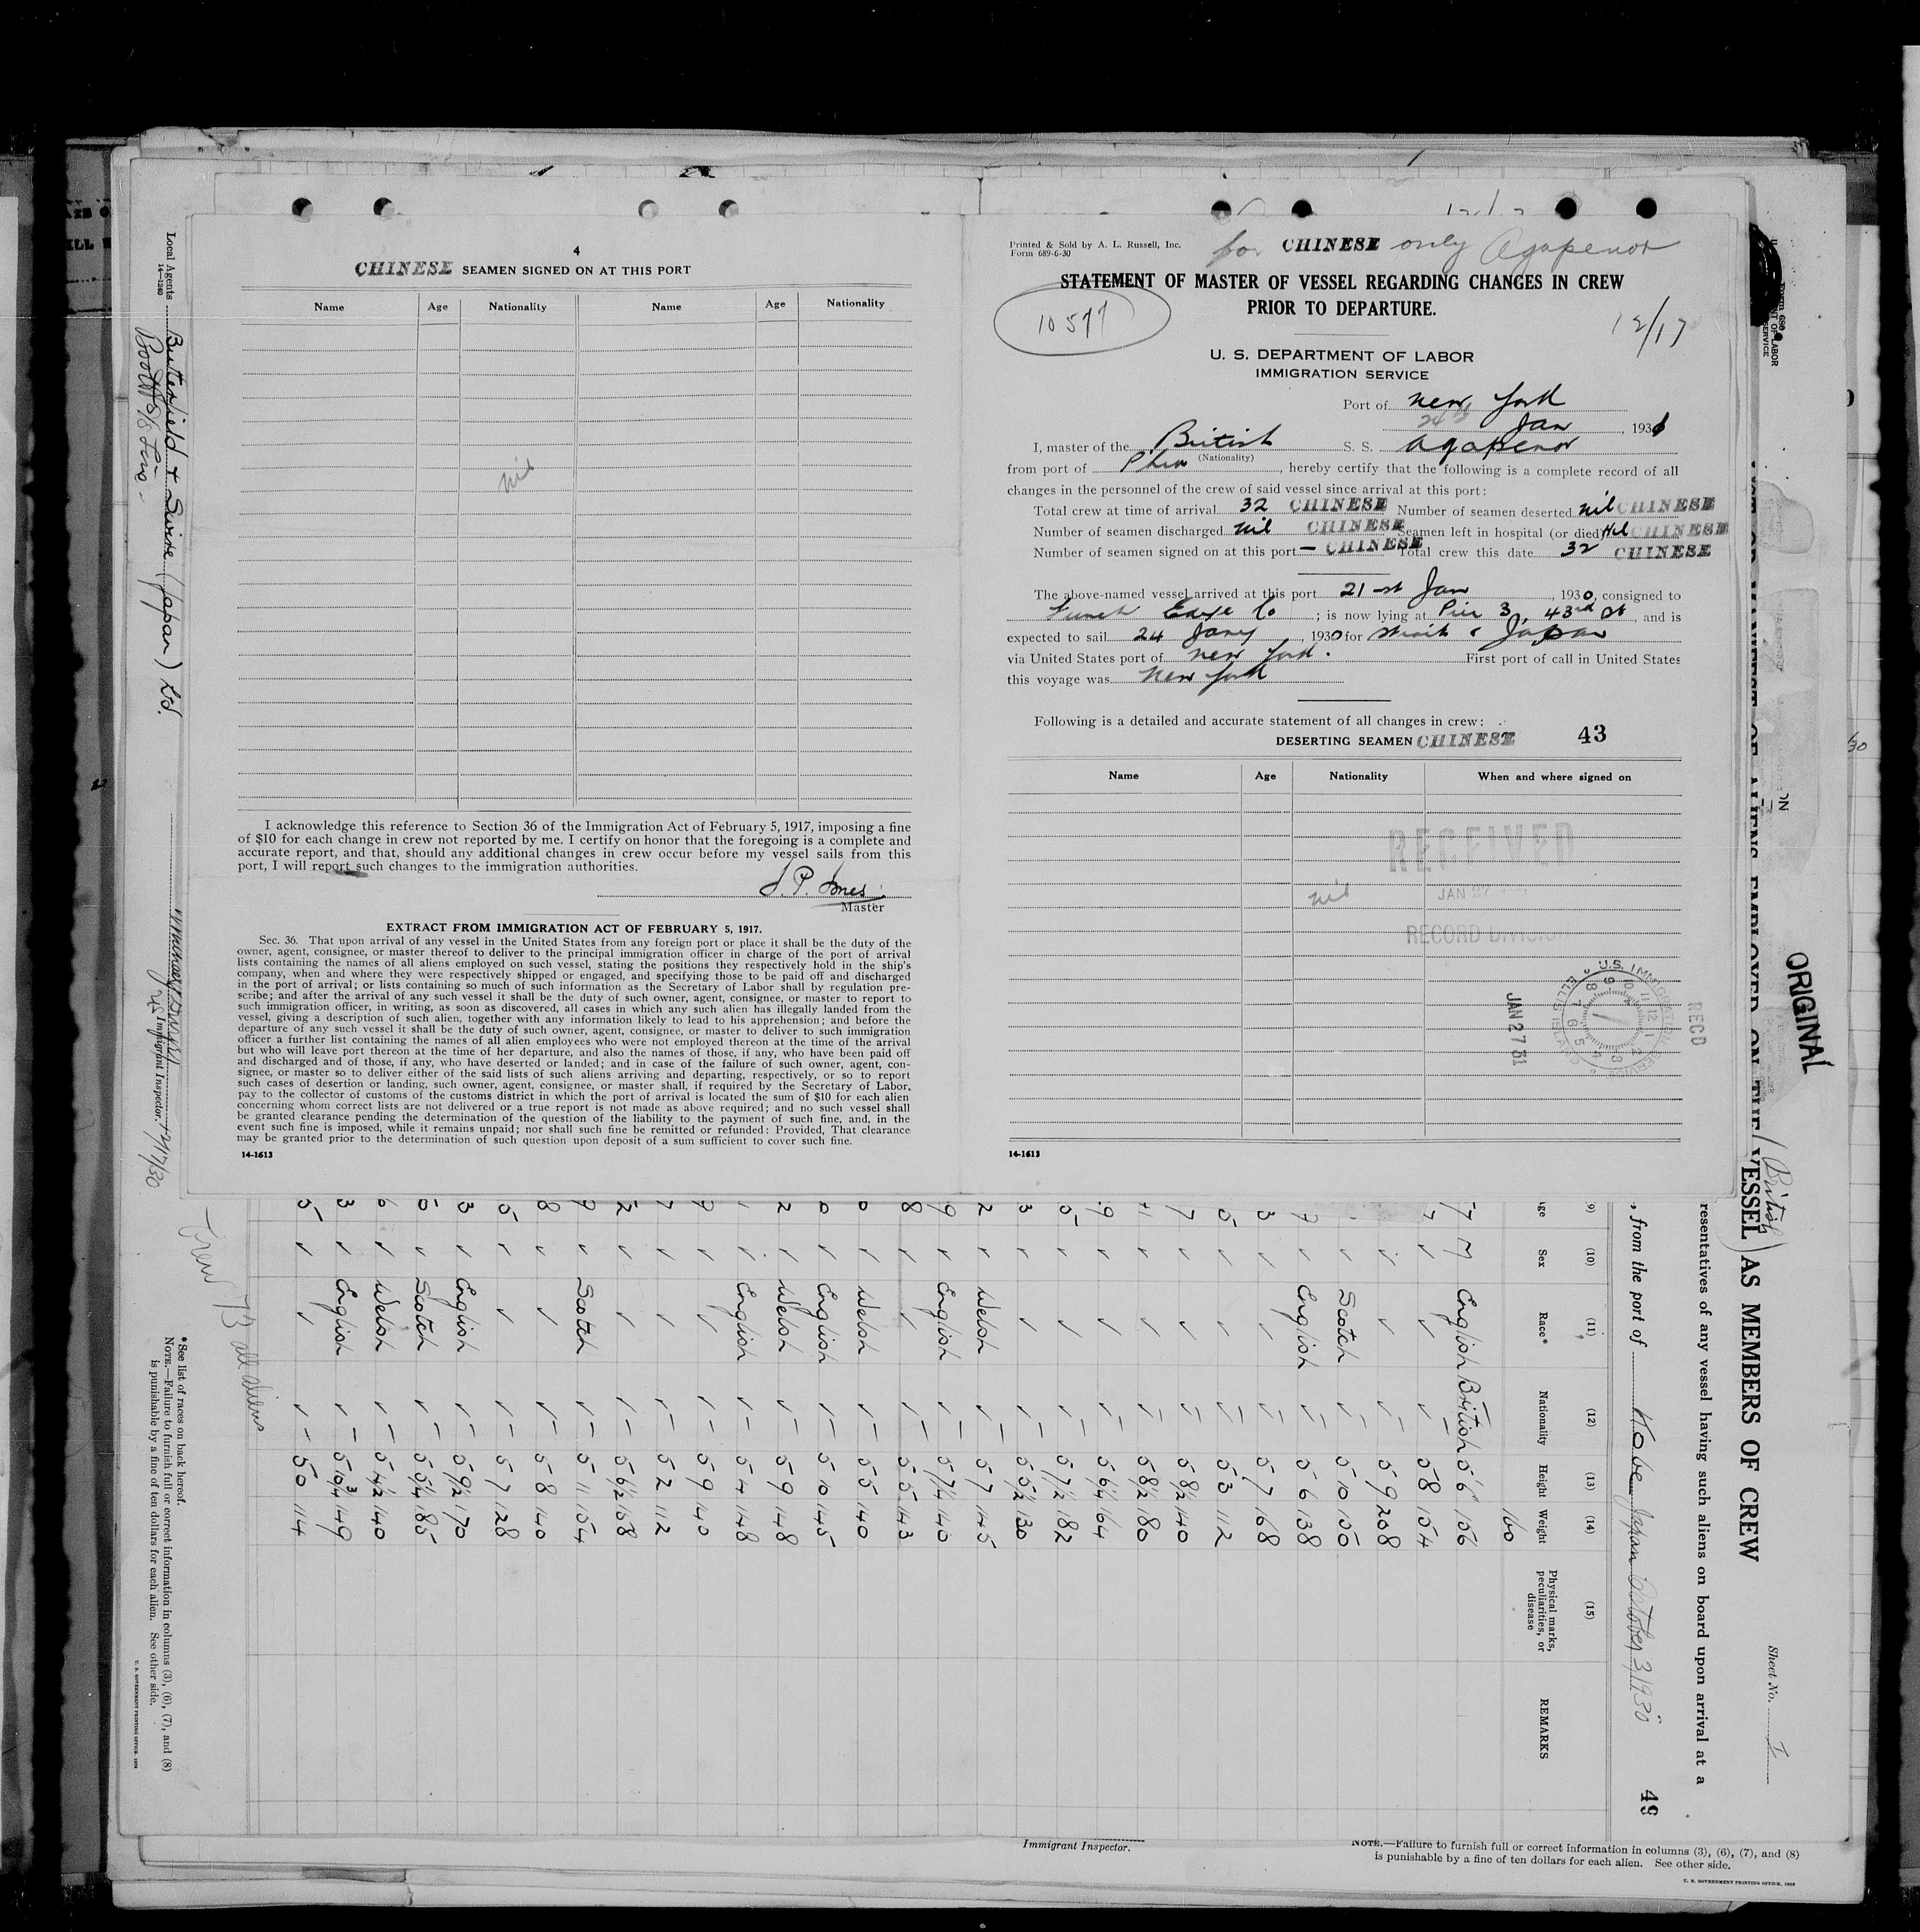 4
CHINESE SEAMEN SIGNED ON AT THIS PORT
Name Age Nationality Name Age Nationality
nil
I acknowledge this reference to Section 36 of the Immigration Act of February 5, 1917, imposing a fine
of $10 for each change in crew not reported by me. I certify on honor that the foregoing is a complete and
accurate report, and that, should any additional changes in crew occur before my vessel sails from this
port, I will report such changes to the immigration authorities.
J. P. Jones
Master
EXTRACT FROM IMMIGRATION ACT OF FEBRUARY 5, 1917.
Sec. 36. That upon arrival of any vessel in the United States from any foreign port or place it shall be the duty of the
owner, agent, consignee, or master thereof to deliver to the principal immigration officer in charge of the port of arrival
lists containing the names of all aliens employed on such vessel, stating the positions they respectively hold in the ship's
company, when and where they were respectively shipped or engaged, and specifying those to be paid off and discharged
in the port of arrival; or lists containing so much of such information as the Secretary of Labor shall by regulation pre-
scribe; and after the arrival of any such vessel it shall be the duty of such owner, agent, consignee, or master to report to
such immigration officer, in writing, as soon as discovered, all cases in which any such alien has illegally landed from the
vessel, giving a description of such alien, together with any information likely to lead to his apprehension; and before the
departure of any such vessel it shall be the duty of such owner, agent, consignee, or master to deliver to such immigration
officer a further list containing the names of all alien employees who were not employed thereon at the time of the arrival
but who will leave port thereon at the time of her departure, and also the names of those, if any, who have been paid off
and discharged and of those, if any, who have deserted or landed; and in case of the failure of such owner, agent, con-
signee, or master so to deliver either of the said lists of such aliens arriving and departing, respectively, or so to report
such cases of desertion or landing, such owner, agent, consignee, or master shall, if required by the Secretary of Labor,
pay to the collector of customs of the customs district in which the port of arrival is located the sum of $10 for each alien
concerning whom correct lists are not delivered or a true report is not made as above required; and no such vessel shall
be granted clearance pending the determination of the question of the liability to the payment of such fine, and, in the
event such fine is imposed, while it remains unpaid; nor shall such fine be remitted or refunded: Provided, That clearance
may be granted prior to the determination of such question upon deposit of a sum sufficient to cover such fine.
14-1613
Printed & Sold by A. L. Russell, Inc.
Form 689-6-30
for CHINESE only Agapenor
STATEMENT OF MASTER OF VESSEL REGARDING CHANGES IN CREW
PRIOR TO DEPARTURE.
10577
12/17
U. S. DEPARTMENT OF LABOR
IMMIGRATION SERVICE
Port of New York
24th Jan, 1931
I, master of the British S. S. Agapenor
(Nationality)
from port of, hereby certify that the following is a complete record of all
changes in the personnel of the crew of said vessel since arrival at this port:
Total crew at time of arrival 32 CHINESE Number of seamen deserted nil CHINESE
Number of seamen discharged Nil CHINESE Seamen left in hospital (or died) Nil CHINESE
Number of seamen signed on at this port — CHINESE Total crew this date 32 CHINESE
The above-named vessel arrived at this port 21st Jan, 1930, consigned to
Funch Edye Co; is now lying at Pier 3, 43rd St, and is
expected to sail 24 Jany, 1930 for Straits & Japan
via United States port of New York. First port of call in United States
this voyage was New York
Following is a detailed and accurate statement of all changes in crew:
DESERTING SEAMEN CHINESE 43
Name Age Nationality When and where signed on
RECEIVED
nil JAN 27
RECORD DIVISION
U.S. IMMIGRATION SERVICE ELLIS ISLAND
JAN 27 31
RECD
14-1613
ORIGINAL
VESSEL AS MEMBERS OF CREW
(British)
Sheet No. 1
resentatives of any vessel having such aliens on board upon arrival at a
, from the port of Kobe Japan October 3, 1930
49
(10) (11) (12) (13) (14) (15)
Sex Race* Nationality Height Weight Physical marks, peculiarities, or disease REMARKS
160
English British 5'6" 156
5 8 154
5 9 208
Scotch 5 10 150
English 5 6 138
5 7 168
5 3 112
5 8½ 140
5 8½ 180
5 6¼ 164
5 7½ 182
5 5½ 130
Welsh 5 7 145
English 5 7¼ 140
5 5 143
Welsh 5 5 140
English 5 10 145
Welsh 5 9 148
English 5 4 148
5 9 140
5 2 112
5 6½ 158
Scotch 5 11 154
5 8 140
5 7 128
English 5 9½ 170
Scotch 5 5¼ 185
Welsh 5 4½ 140
English 5 10¾ 149
5 0 114
Crew 73 all aliens
*See list of races on back hereof.
NOTE.—Failure to furnish full or correct information in columns (3), (6), (7), and (8)
is punishable by a fine of ten dollars for each alien. See other side.
Local Agents Butterfield & Swire (Japan) Ltd.
14-1240
Immigrant Inspector.
Immigrant Inspector.
NOTE.—Failure to furnish full or correct information in columns (3), (6), (7), and (8)
is punishable by a fine of ten dollars for each alien. See other side.
U. S. GOVERNMENT PRINTING OFFICE, 1929